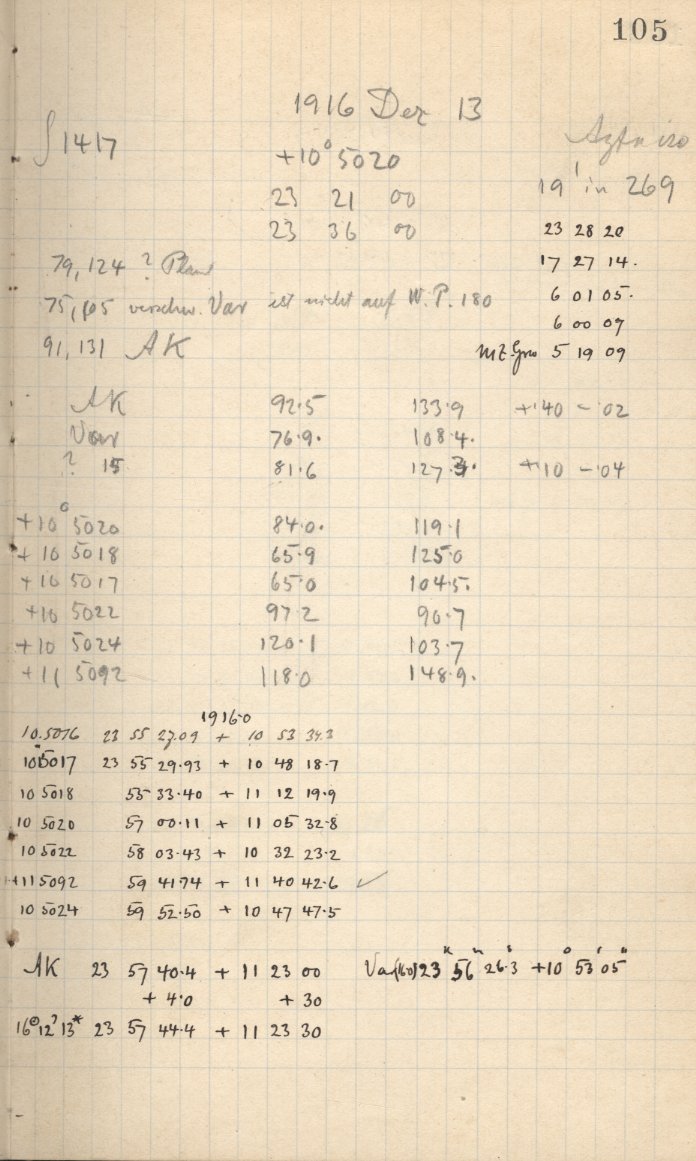 105
1916 Dez 13
1417
+10° 5020
19' in 269
23 21 00
23 36 00
23 28 20
79, 124 ? Plan
17 27 14.
75, 105 verschw. Var ist nicht auf W.P. 180
6 01 05.
6 00 07
91, 131 AK
MZ. Grw 5 19 09
AK 92.5 133.9 +.40 -.02
Var 76.9. 108.4.
? 15 81.6 127.3. +.10 -.04
+10° 5020 84.0. 119.1
+10 5018 65.9 125.0
+10 5017 65.0 104.5.
+10 5022 97.2 90.7
+10 5024 120.1 103.7
+11 5092 118.0 148.9.
1916.0
10.5016 23 55 27.09 + 10 53 34.3
10 5017 23 55 29.93 + 10 48 18.7
10 5018 55 33.40 + 11 12 19.9
10 5020 57 00.11 + 11 05 32.8
10 5022 58 03.43 + 10 32 23.2
+11 5092 59 41.74 + 11 40 42.6 ✓
10 5024 59 52.50 + 10 47 47.5
AK 23 57 40.4 + 11 23 00 Var(16.0) 23h 56m 26.3s +10° 53' 05"
+ 4.0 + 30
23 57 44.4 + 11 23 30